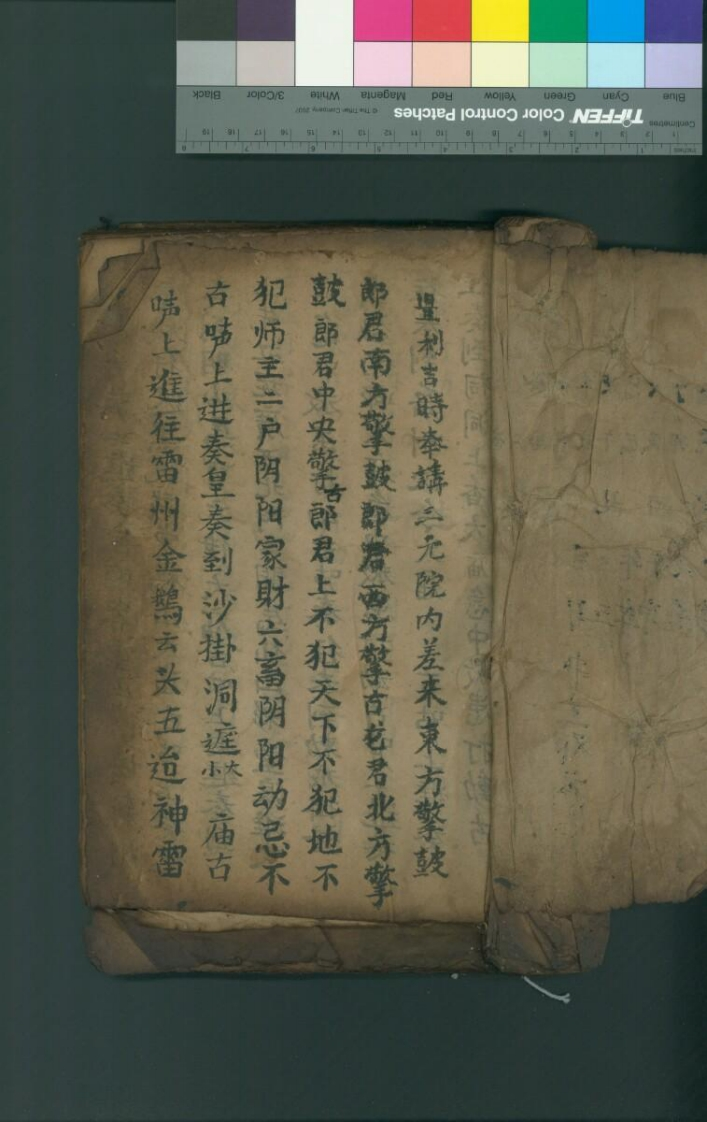 利吉時奉講三元院内差来東方擎鼓
郎君南方擎鼓郎君西方擎古君北方擎
鼓郎君中央擎古郎君上不犯天下不犯地不
犯师主二户阴阳家財六畜阴阳动忌不
古上进奏皇奏到沙掛洞大小庙古
上進往雷州金云头五神雷
Black
3/Color
White
Magenta
Red
Yellow
Green
Cyan
Blue
TIFFEN Color Control Patches
© The Tiffen Company, 2007
Centimetres
Inches